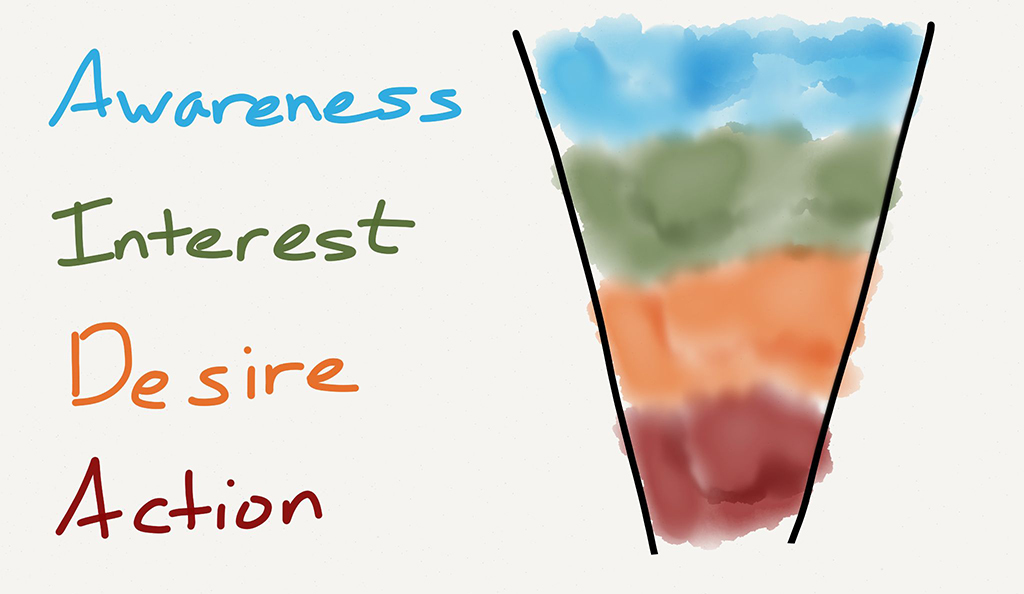 Awareness
Interest
Desire
Action